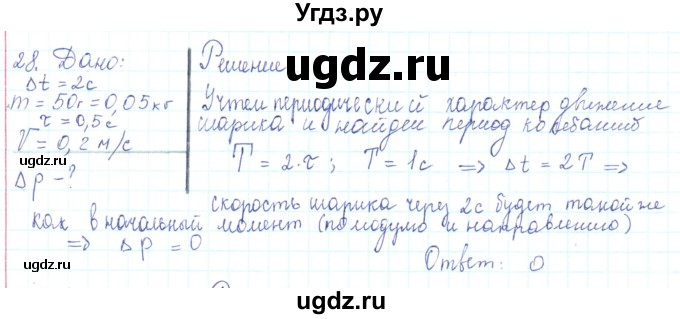 Угдз.ру
28. Дано:
Δt = 2с
m = 50г = 0,05 кг
τ = 0,5с
V = 0,2 м/с
Δp - ?
Решение
ugdz.ru
Учтем периодический характер движение
шарика и найдем период колебаний
T = 2·τ ; T = 1с ⇒ Δt = 2T ⇒
скорость шарика через 2с будет такой же
как в начальный момент (по модулю и направлению)
⇒ Δp = 0
Ответ: 0
ugdz.ru
ugdz.ru
ugdz.ru
ugdz.ru
ugdz.ru
ugdz.ru